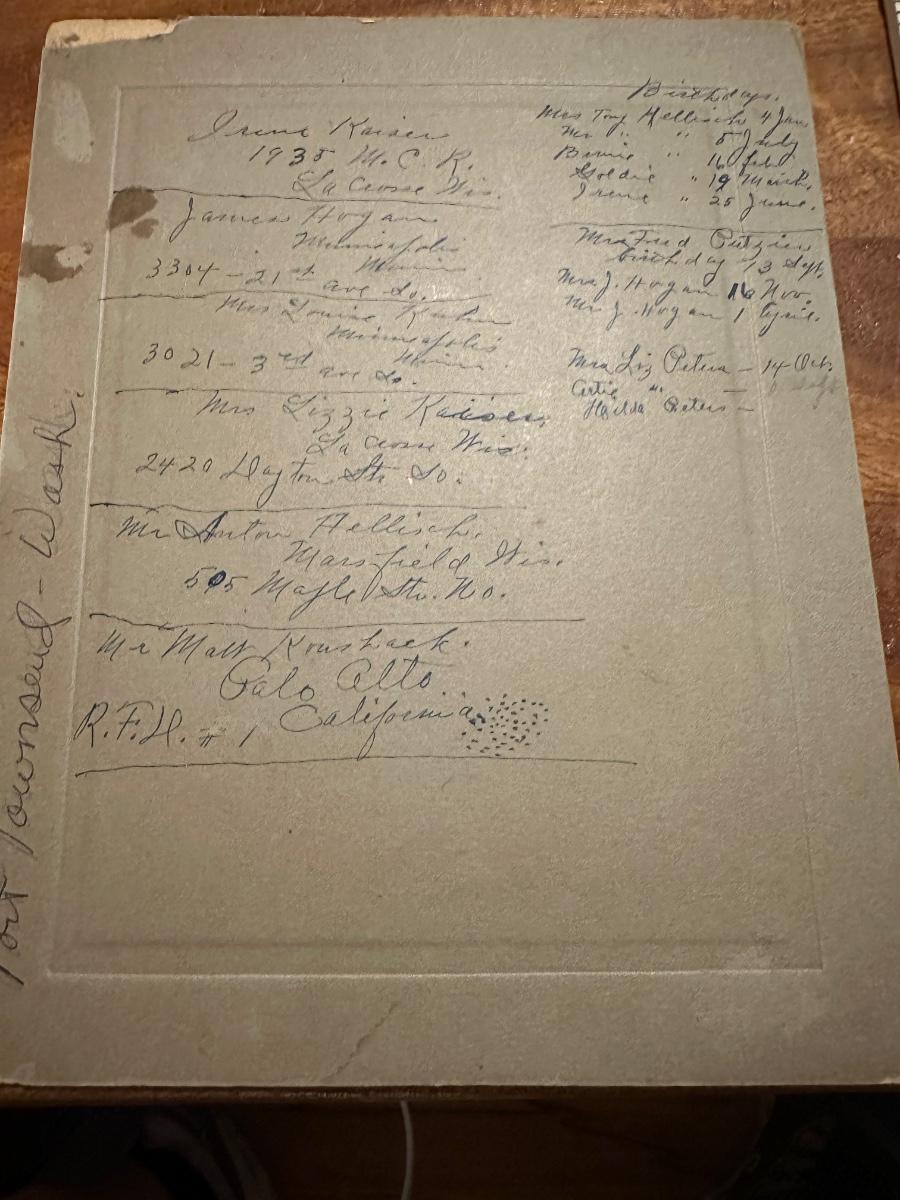 Irene Kaiser
1935 M. C. R.
La Crosse Wis.
James Hogan
Minneapolis
Minn
3304 - 21st ave So.
Mrs Louise
Minneapolis
Minn.
3021 - 3rd ave So.
Mrs Lizzie Kaiser,
La Crosse Wis.
2420 Dayton Str So.
Mr Anton Hellisch.
Marsfield Wis.
505 Maple Str. No.
Mr Matt Koushack.
Palo Alto
California
R.F.D. # 1
Birthdays.
Mrs Tony Hellisch 4 Jan
Mr " " 5 July
Bernie " 16 Feb
Goldie " 19 March.
Irene " 25 June.
Mrs Fred
birthday 13 Sept.
Mrs J. Hogan 16 Nov.
Mr J. Hogan 1 April.
Mrs Liz Peters - 14 Oct.
Artie " -
Hilda Peters -
Port Townsend - Wash.